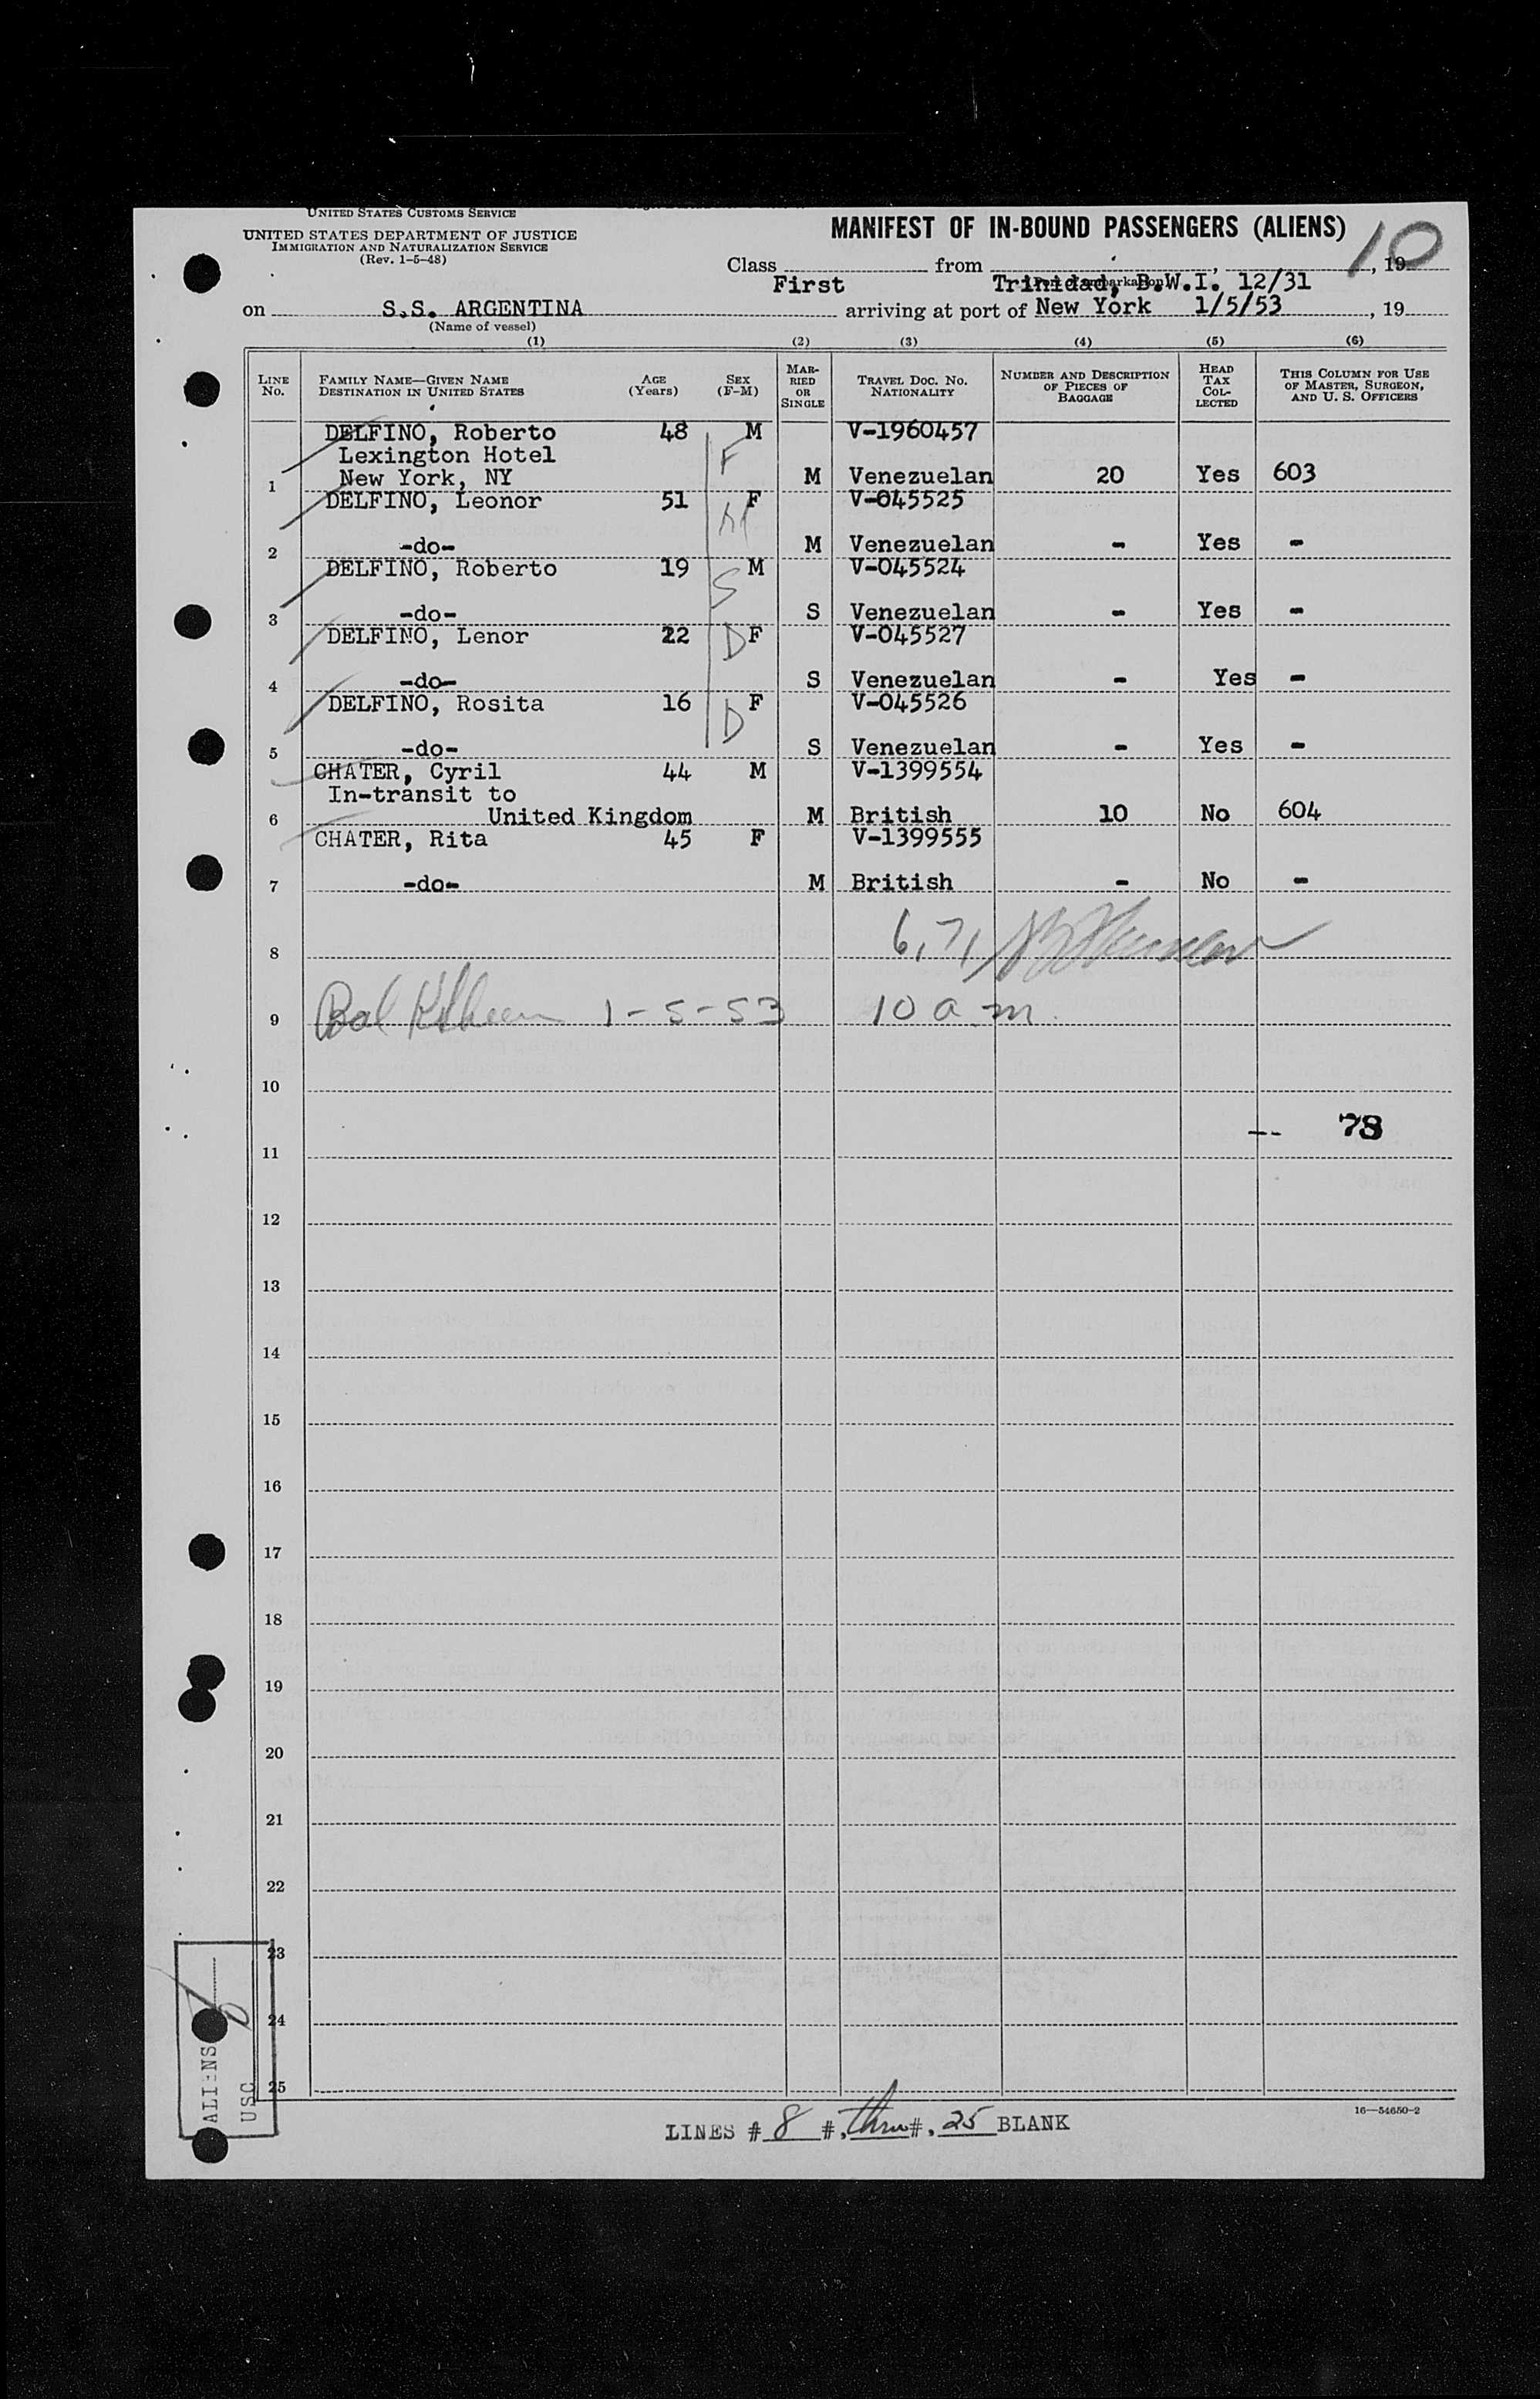 UNITED STATES CUSTOMS SERVICE
UNITED STATES DEPARTMENT OF JUSTICE
IMMIGRATION AND NATURALIZATION SERVICE
(Rev. 1-5-48)
MANIFEST OF IN-BOUND PASSENGERS (ALIENS)
10
Class First from Trinidad, B.W.I. 12/31, 19
on S.S. ARGENTINA arriving at port of New York 1/5/53, 19
(Name of vessel)
(1) (2) (3) (4) (5) (6)
LINE NO. FAMILY NAME—GIVEN NAME DESTINATION IN UNITED STATES AGE (Years) SEX (F-M) MARRIED OR SINGLE TRAVEL DOC. NO. NATIONALITY NUMBER AND DESCRIPTION OF PIECES OF BAGGAGE HEAD TAX COLLECTED THIS COLUMN FOR USE OF MASTER, SURGEON, AND U. S. OFFICERS
DELFINO, Roberto 48 M V-1960457
Lexington Hotel F
1 New York, NY M Venezuelan 20 Yes 603
DELFINO, Leonor 51 F V-045525
M
2 -do- M Venezuelan - Yes -
DELFINO, Roberto 19 M V-045524
S
3 -do- S Venezuelan - Yes -
DELFINO, Lenor 22 D F V-045527
4 -do- S Venezuelan - Yes -
DELFINO, Rosita 16 F V-045526
D
5 -do- S Venezuelan - Yes -
CHATER, Cyril 44 M V-1399554
In-transit to
6 United Kingdom M British 10 No 604
CHATER, Rita 45 F V-1399555
7 -do- M British - No -
6, 7,
8
9 Bal 1-5-53 10 a.m.
10
-- 78
11
12
13
14
15
16
17
18
19
20
21
22
23
24
25
ALIENS
USC
LINES # 8 #, thru #, 25 BLANK
16—54650-2